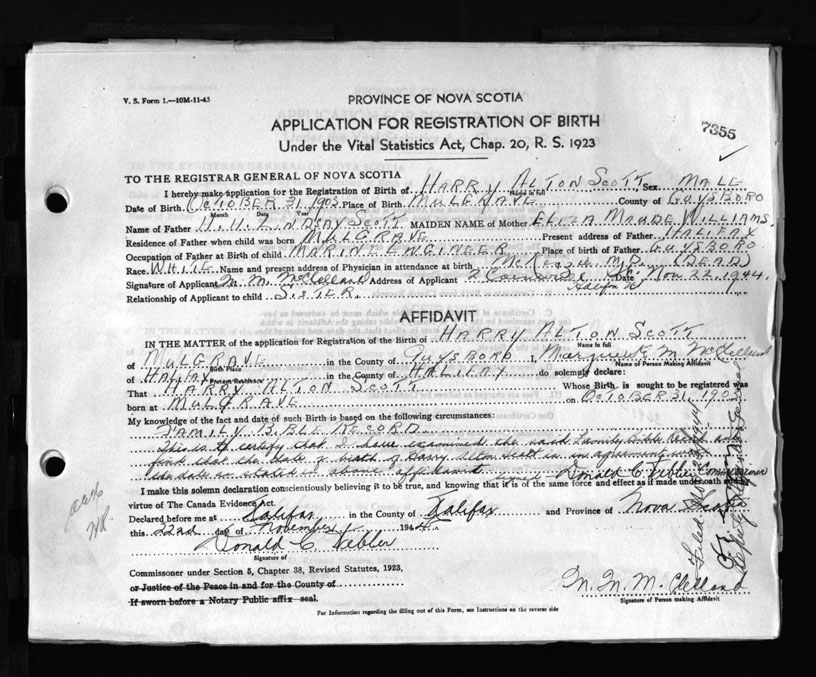 V. S. Form 1.—10M-11-43
PROVINCE OF NOVA SCOTIA
7355
APPLICATION FOR REGISTRATION OF BIRTH
Under the Vital Statistics Act, Chap. 20, R. S. 1923
TO THE REGISTRAR GENERAL OF NOVA SCOTIA
I hereby make application for the Registration of Birth of HARRY ALTON SCOTT Sex MALE
Name in full
Date of Birth OCTOBER 31, 1903 Place of Birth MULGRAVE County of GUYSBORO
Month Day Year
Name of Father H. H. LINDSAY SCOTT MAIDEN NAME of Mother ELIZA MAUDE WILLIAMS
Residence of Father when child was born MULGRAVE Present address of Father HALIFAX
Occupation of Father at Birth of child MARINE ENGINEER Place of birth of Father GUYSBORO
Race WHITE Name and present address of Physician in attendance at birth M.D. (DEAD)
Signature of Applicant M. M. McClelland Address of Applicant Date Nov. 22, 1944
Halifax
Relationship of Applicant to child SISTER
AFFIDAVIT
IN THE MATTER of the application for Registration of the Birth of HARRY ALTON SCOTT
Name in full
of MULGRAVE in the County of GUYSBORO I, M McClelland
Birth Place Name of Person Making Affidavit
of HALIFAX in the County of HALIFAX do solemnly declare:
Present Residence
That HARRY ALTON SCOTT Whose Birth is sought to be registered was
born at MULGRAVE on OCTOBER 31, 1903
My knowledge of the fact and date of such Birth is based on the following circumstances:
FAMILY BIBLE RECORD
This is to certify that I have examined the said Family Bible Record and
find that the date of birth of Harry Alton Scott is in agreement with
the date as stated in above affidavit signed Donald C Commissioner
I make this solemn declaration conscientiously believing it to be true, and knowing that it is of the same force and effect as if made under oath and by
virtue of The Canada Evidence Act.
Declared before me at Halifax in the County of Halifax and Province of Nova Scotia
this 22nd day of November 1944
Donald C
Signature of
Commissioner under Section 5, Chapter 38, Revised Statutes, 1923,
or Justice of the Peace in and for the County of
If sworn before a Notary Public affix seal.
M. M. McClelland
Signature of Person making Affidavit
For Information regarding the filling out of this Form, see Instructions on the reverse side